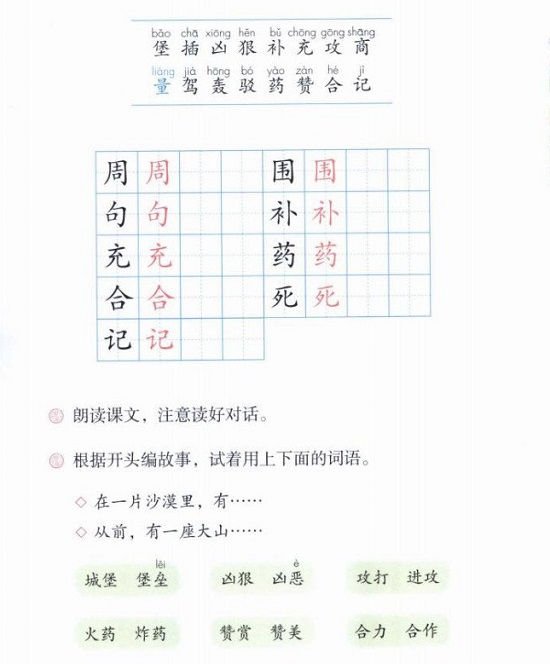 bǎo chā xiōng hěn bǔ chōng gōng shāng
堡 插 凶 狠 补 充 攻 商
liàng jià hōng bó yào zàn hé jì
量 驾 轰 驳 药 赞 合 记
周 周 围 围
句 句 补 补
充 充 药 药
合 合 死 死
记 记
朗读课文，注意读好对话。
根据开头编故事，试着用上下面的词语。
◇ 在一片沙漠里，有……
◇ 从前，有一座大山……
lěi è
城堡 堡垒 凶狠 凶恶 攻打 进攻
火药 炸药 赞赏 赞美 合力 合作